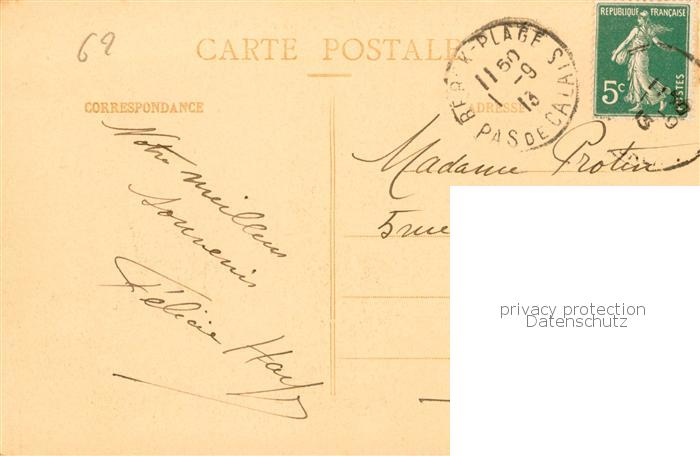 69
CARTE POSTALE
RÉPUBLIQUE FRANÇAISE
5c POSTES
BERCK-PLAGE
PAS DE CALAIS
11 50
1 -9
13
CORRESPONDANCE
ADRESSE
Notre meilleur
souvenir
Félicie
Madame Protin
5 rue
privacy protection
Datenschutz